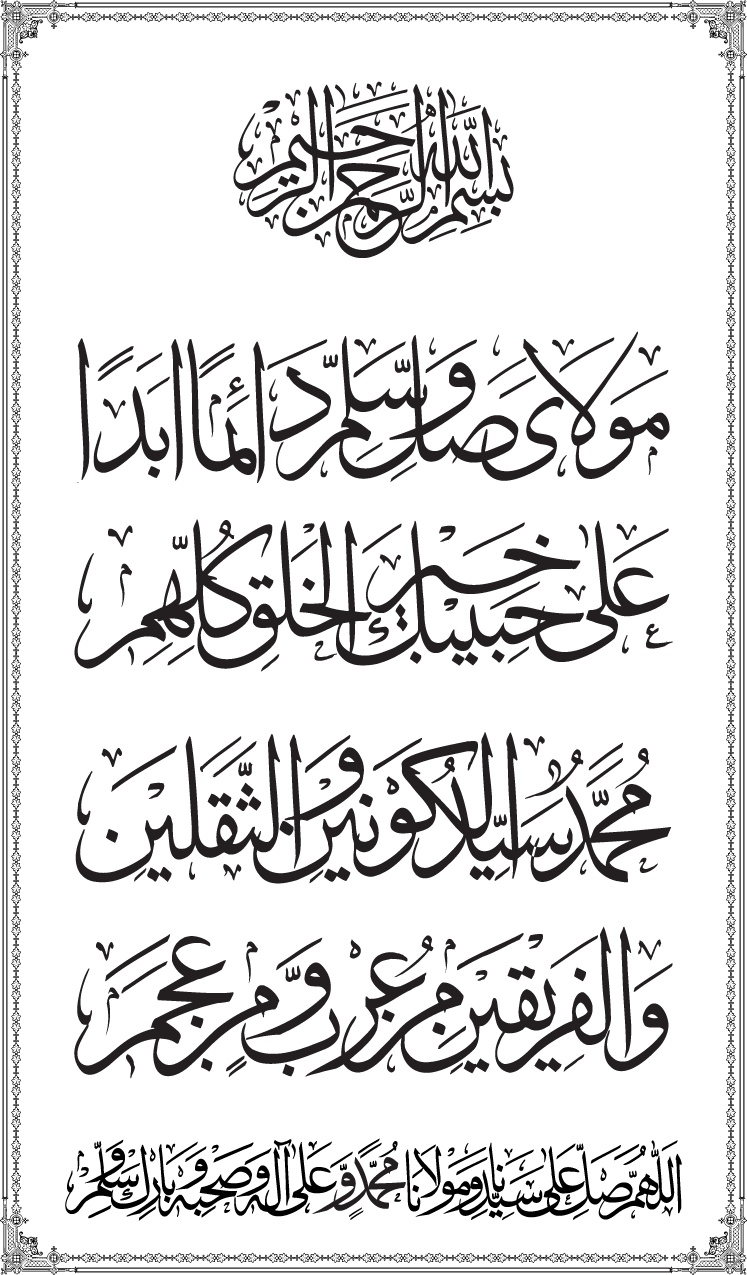 بسم الله الرحمن الرحيم
مَولَاىَ صَلِّ وَسَلِّم دَائِمًا اَبَدًا
عَلى حَبِيبِكَ خَيرِ الخَلقِ كُلِّهِمِ
مُحَمَّدٌ سَيِّدُ الكَونَينِ وَالثَّقَلَينِ
وَالفَرِيقَينِ مِن عُربٍ وَّمِن عَجَمِ
اَللّٰهُمَّ صَلِّ عَلى سَيِّدِنَا وَمَولَانَا مُحَمَّدٍ وَّعَلى آلِه وَصَحبِه وَبَارِك وَسَلِّم